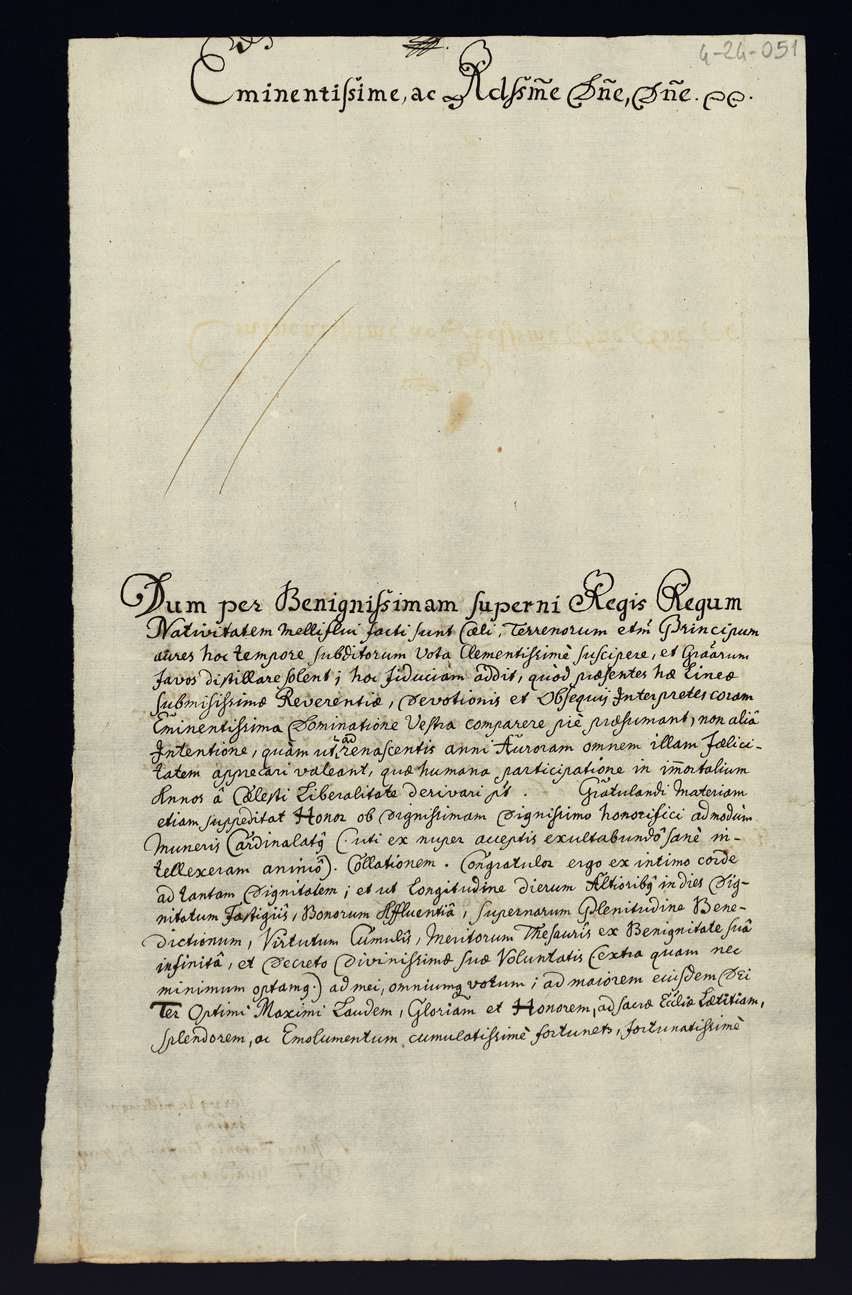 4-24-051
Eminentissime, ac Rdssm̃e Dñe, Dñe.
Dum per Benignissimam superni Regis Regum
Nativitatem melliflui facti sunt Cæli, Terrenorum etm̃ Principum
aures hoc tempore subditorum vota Clementissimè suscipere, et Gr̃arum
favos distillare solent; hoc fiduciam addit, quòd præsentes hæ lineæ
submisissimæ Reverentiæ, Devotionis et Obsequij Interpretes coram
Eminentissima Dominatione Vestra comparere piè præsumant, non aliâ
Intentione, quàm ut ad renascentis anni Auroram omnem illam Fælici-
tatem apprecari valeant, quæ humana participatione in im̃ortalium
Annos â Cælesti Liberalitate derivari pt. Gratulandi Materiam
etiam suppeditat Honor ob Dignissimam Dignissimo honorifici admodùm
Muneris Cardinalatq̃ (: uti ex nuper acceptis exultabundô sanè in-
tellexeram animô). Collationem. Congratulor ergo ex intimo corde
ad tantam Dignitatem; et ut Longitudine dierum Altioribq̃ in dies Dig-
nitatum Fastigiis, Bonorum Affluentiâ, supernarum Plenitudine Bene-
dictionum, Virtutum Cumulis, Meritorum Thesauris ex Benignitate suâ
infinitâ, et Decreto Divinissimæ suæ Voluntatis (extra quam nec
minimum optamq.) ad mei, omniumq votum; ad maiorem eiusdem Dei
Ter Optimi Maximi Laudem, Gloriam et Honorem, ad sacræ Ecliæ Lætitiam,
splendorem, ac Emolumentum cumulatissimè fortunets, fortunatissimè